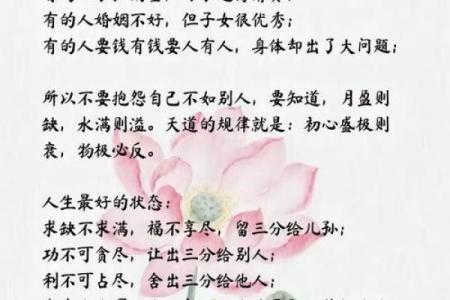 有的人婚姻不好，但子女很优秀；
有的人要钱有钱要人有人，身体却出了大问题；
所以不要抱怨自己不如别人，要知道，月盈则
缺，水满则溢。天道的规律就是：初心盛极则
衰，物极必反。
人生最好的状态：
求缺不求满，福不享尽，留三分给儿孙；
功不可贪尽，让出三分给别人；
利不可占尽，舍出三分给他人；